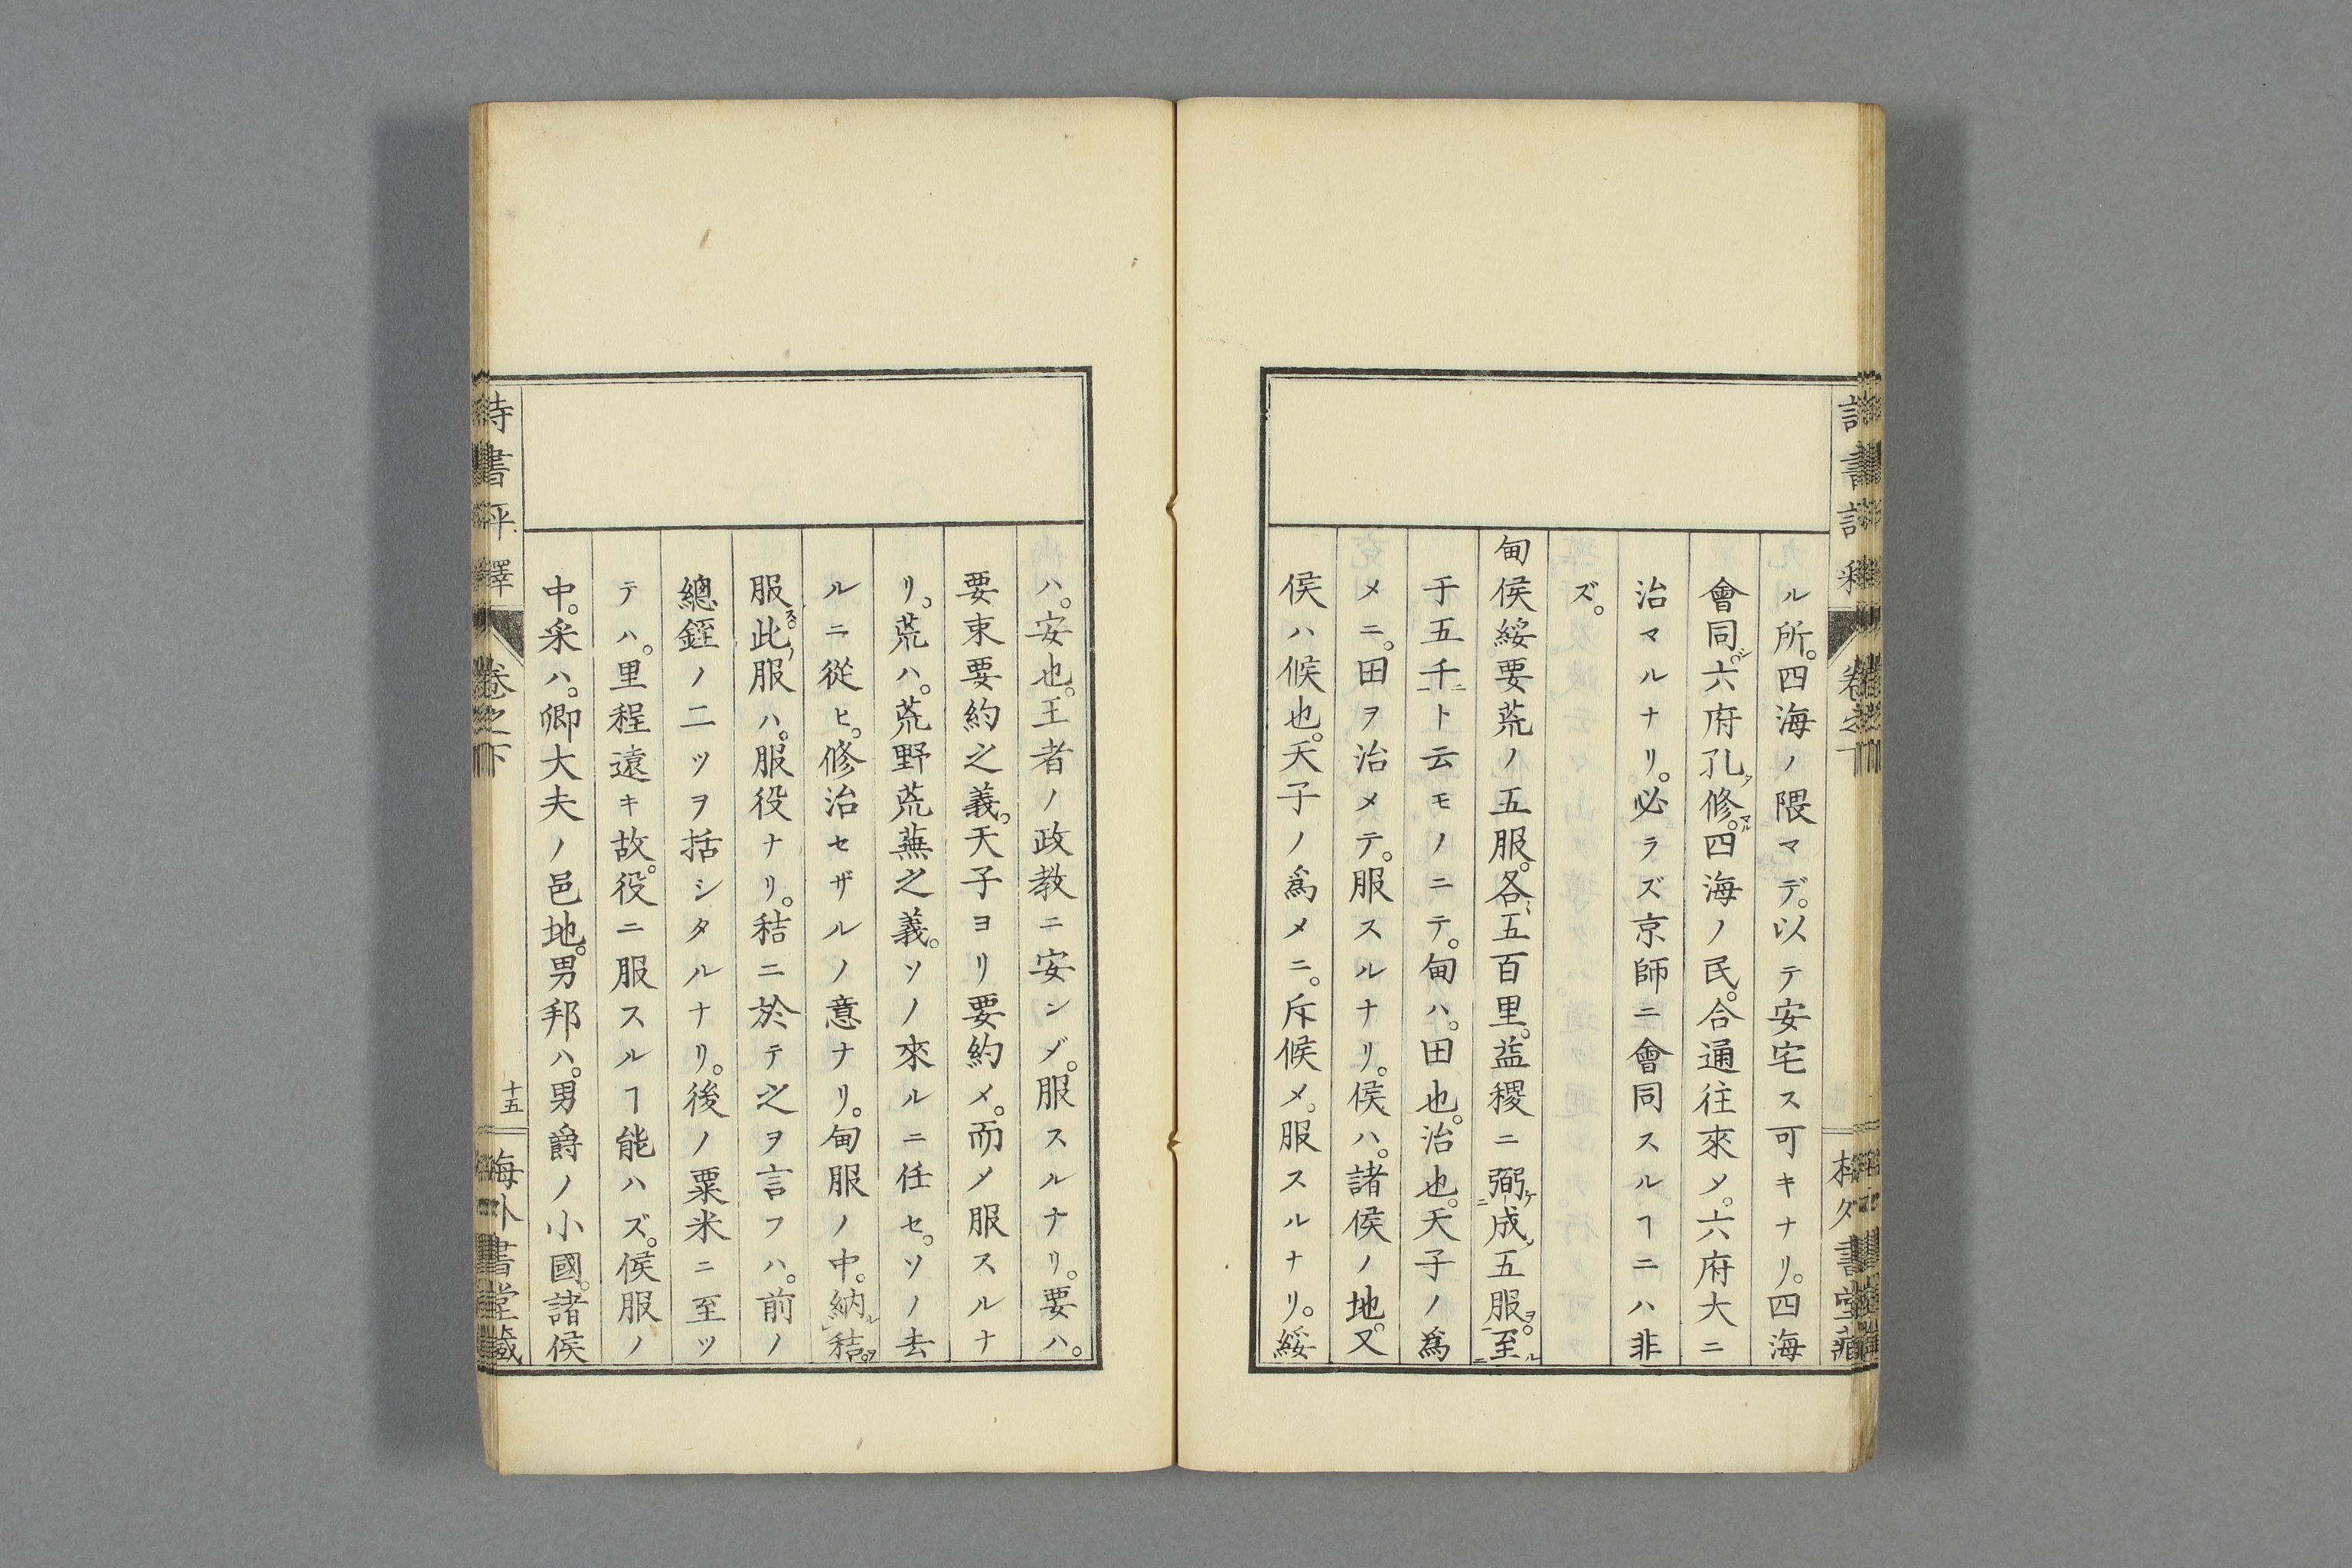 ル所。四海ノ隈マデ。以テ安宅ス可キナリ。四海
會同シ。六府孔ダ修マル。四海ノ民。合通往來〆。六府大ニ
治マルナリ。必ラズ京師ニ會同スルヿニハ非
ズ。
甸侯綏要荒ノ五服。各〻五百里。益稷ニ弼ケ成シ五服ヲ。至ル
于五千ト云モノニテ。甸ハ。田也。治也。天子ノ爲
メニ。田ヲ治メテ。服スルナリ。侯ハ。諸侯ノ地。又
侯ハ候也。天子ノ爲メニ。斥候メ。服スルナリ。綏
ハ。安也。王者ノ政教ニ安ンゾ。服スルナリ。要ハ。
要束要約之義。天子ヨリ要約メ。而〆服スルナ
リ。荒ハ。荒野荒蕪之義。ソノ來ルニ任セ。ソノ去
ルニ從ヒ。修治セザルノ意ナリ。甸服ノ中。納ル秸ヲ。
服ス。此ノ服ハ。服役ナリ。秸ニ於テ之ヲ言フハ。前ノ
總銍ノ二ツヲ括シタルナリ。後ノ粟米ニ至ツ
テハ。里程遠キ故。役ニ服スルヿ能ハズ。侯服ノ
中。采ハ。卿大夫ノ邑地。男邦ハ。男爵ノ小國。諸侯
書評釋
卷之下
十五
書堂藏